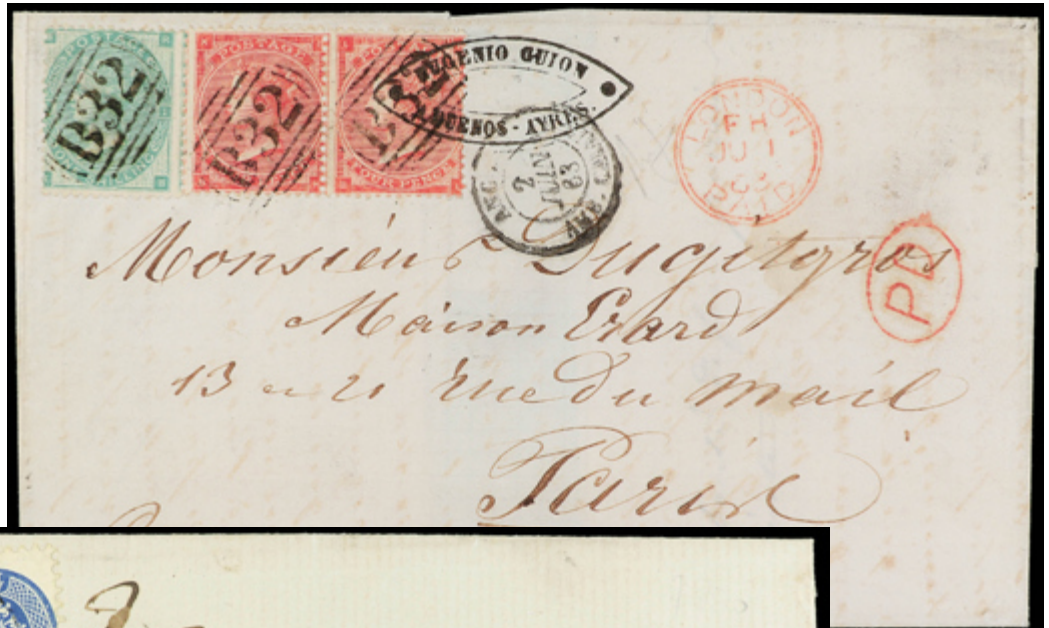 POSTAGE
ONE SHILLING
B32
POSTAGE
B32
POSTAGE
FOUR PENCE
B32
EUGENIO GUION
BUENOS-AYRES.
ANGL.
2 JUIN 63
AMB. CALAIS
LONDON
FH
JU 1
63
PAID
PD
Monsieur Dugitgros
Maison Erard
13 et 21 rue du mail
Paris